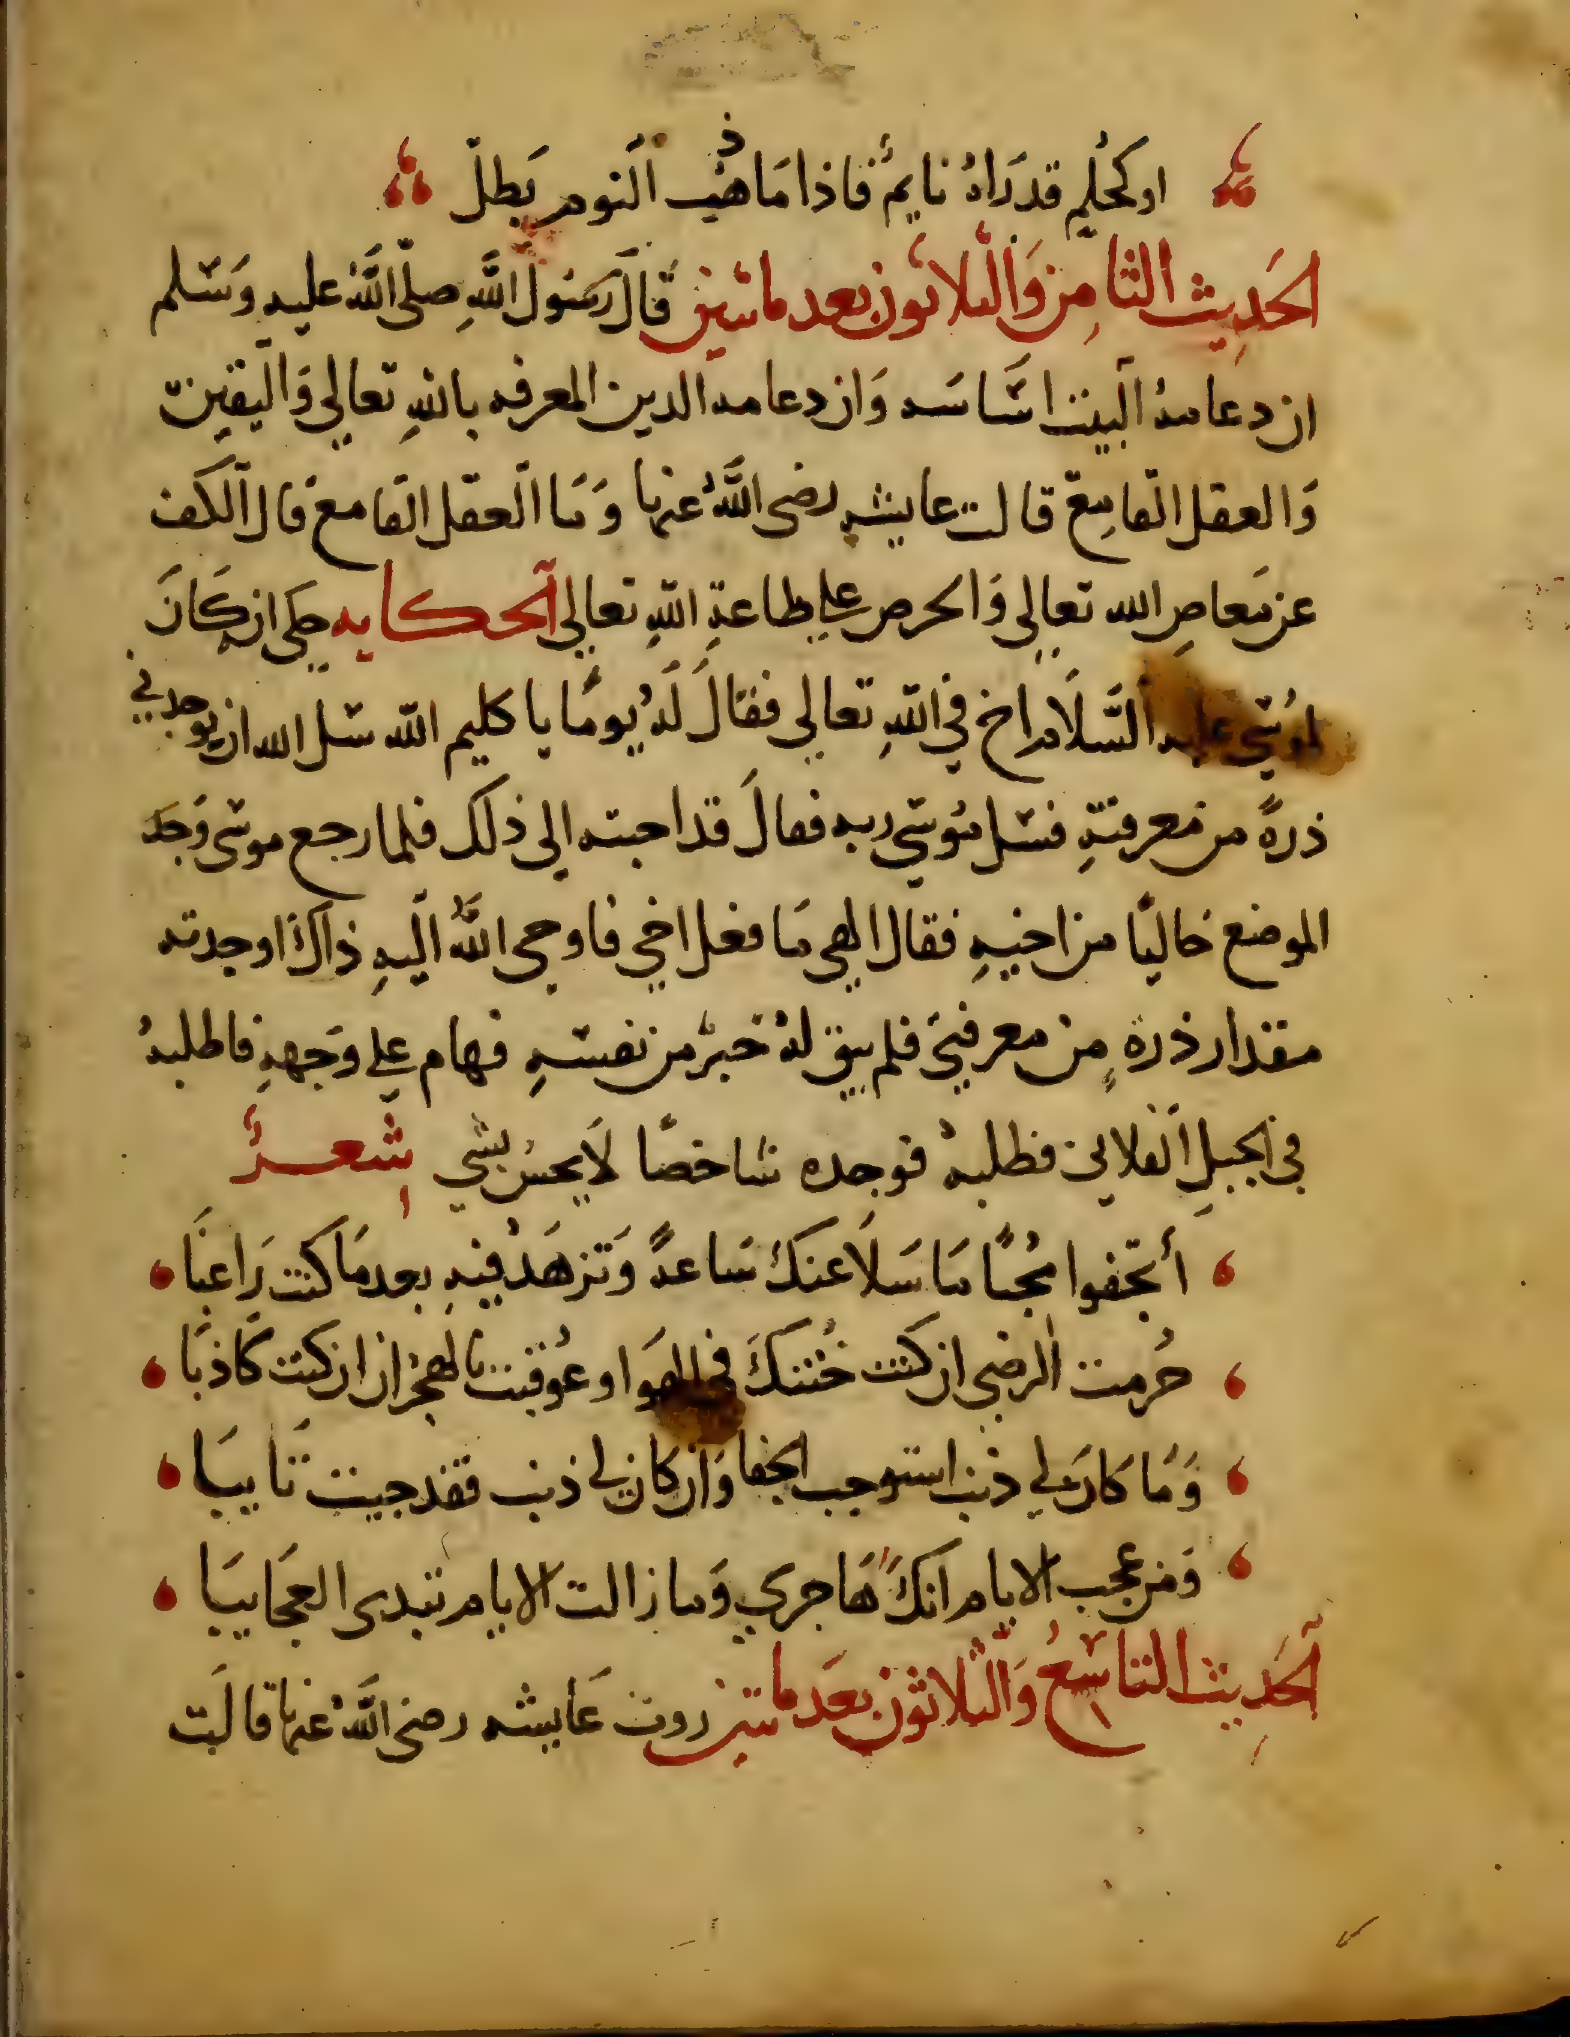 او كحُلمٍ قد رَاهُ نايمٌ فاذا مَا ذهب النوم بَطلّ
الحَدِيث الثامِن وَالثلاثون بعد مائتين قَالَ رَسُول اللَّهِ صلّى اللَّهُ عليه وَسَّلم
ان دعامهُ البيت اسَاسَه وَان دعامه الدين المعرفه باللهِ تعالي وَاليقين
وَالعقل القامِع قالت عايشه رضى اللَّهُ عنها وَمَا العقل القامع قال الكف
عن مَعاصِ الله تعالي وَالحرص علي طاعةِ اللّهِ تعالي الحكايه حكى انه كَانَ
لموُسَي عليه السَّلَام اخ في اللّهِ تعالي فقالَ لَهُ يومًا يا كليم اللّه سَل الله ان يوجدني
ذرةً من معرفتهِ فسَل مُوسَي ربه فقالَ قد اجبته الي ذلك فلما رجع موسَى وَجَد
الموضع خاليًا من اخيهِ فقال الهي مَا فعل اخي فاوحى اللَّهُ اليهِ ذاكَ اوجدته
مقدار ذرهٍ من معرفتي فلم يبق لهُ خبرٌ من نفسَهِ فهام علي وَجههِ فاطلبهُ
في الجبلِ الفلاني فطلبهُ فوجده شاخصًا لَا يحسُ بشي شعرٌ
أتجفوا مُحبًا مَا سَلَا عنكَ سَاعةً وَتزهَدُ فيهِ بعد مَا كنت رَاغبَا
حُرمت الرضى ان كنت خُنتكَ في الهَوا وعُوقبت بالهجرَان ان كنت كَاذبًا
وَمَا كانَ لي ذنب استوجب الجفا وَان كان لي ذنب فقد جيت تَايبَا
وَمن عجب الايام انكَ هَاجري وَما زالت الايام تبدى العجَايبَا
الحَدِيث التاسِعُ وَالثلاثون بعَد مائتين روت عَايشه رضى اللَّهُ عنها قالَت